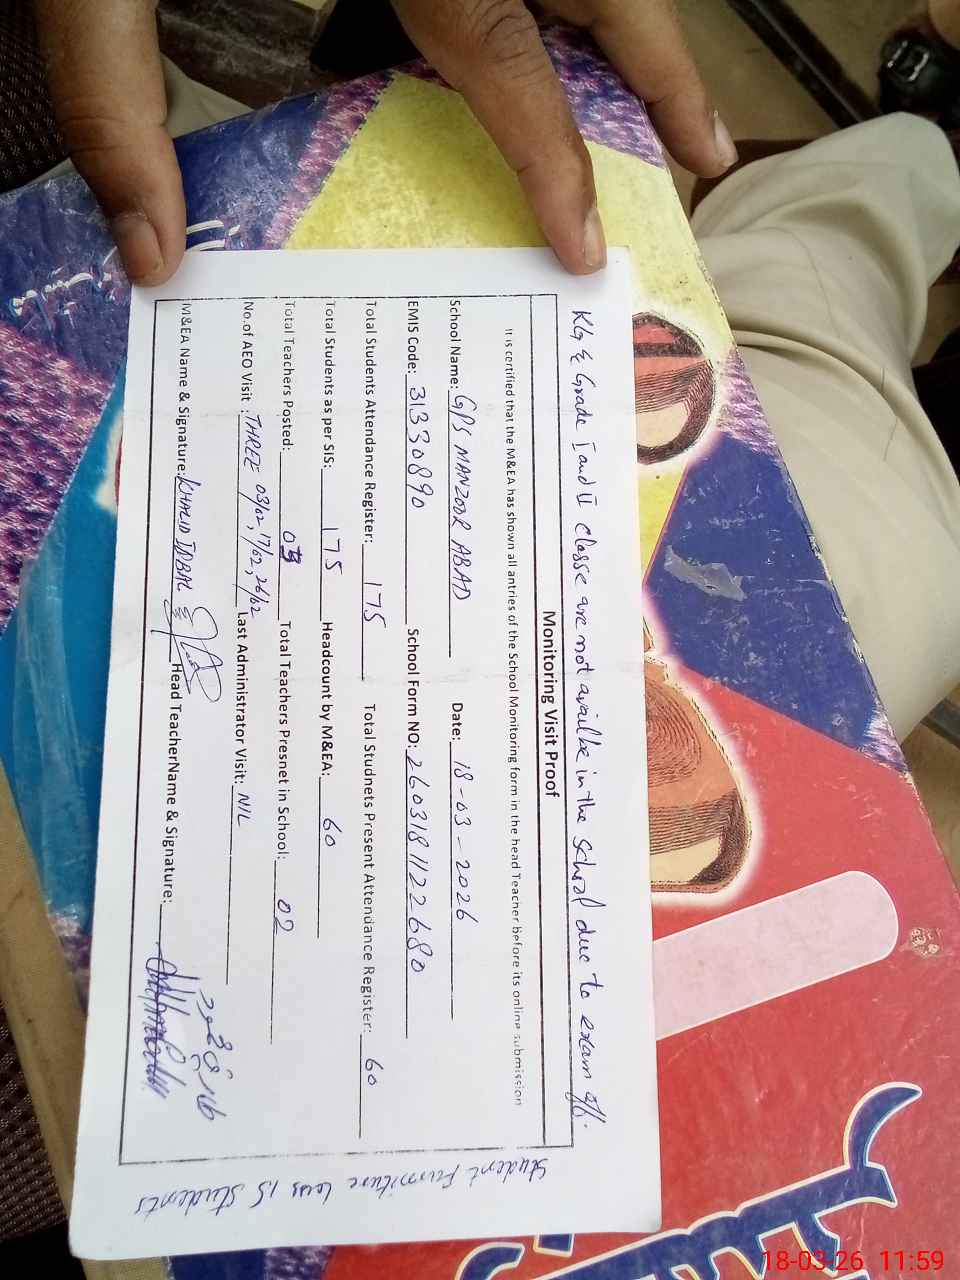 KG & Grade I and II classe are not availbe in the school due to exam
Monitoring Visit Proof
It is certified that the M&EA has shown all antries of the School Monitoring form in the head Teacher before its online submission
School Name: GPS MANZOOR ABAD Date: 18-03-2026
EMIS Code: 31330890 School Form NO: 260318112680
Total Students Attendance Register: 175 Total Studnets Present Attendance Register: 60
Total Students as per SIS: 175 Headcount by M&EA: 60
Total Teachers Posted: 03 Total Teachers Presnet in School: 02
No.of AEO Visit : THREE 03/02, 17/02, 26/02 Last Administrator Visit: NIL
M&EA Name & Signature: KHALID IQBAL Head TeacherName & Signature:
Student Furniture Less 15 Students
18-03-26 11:59